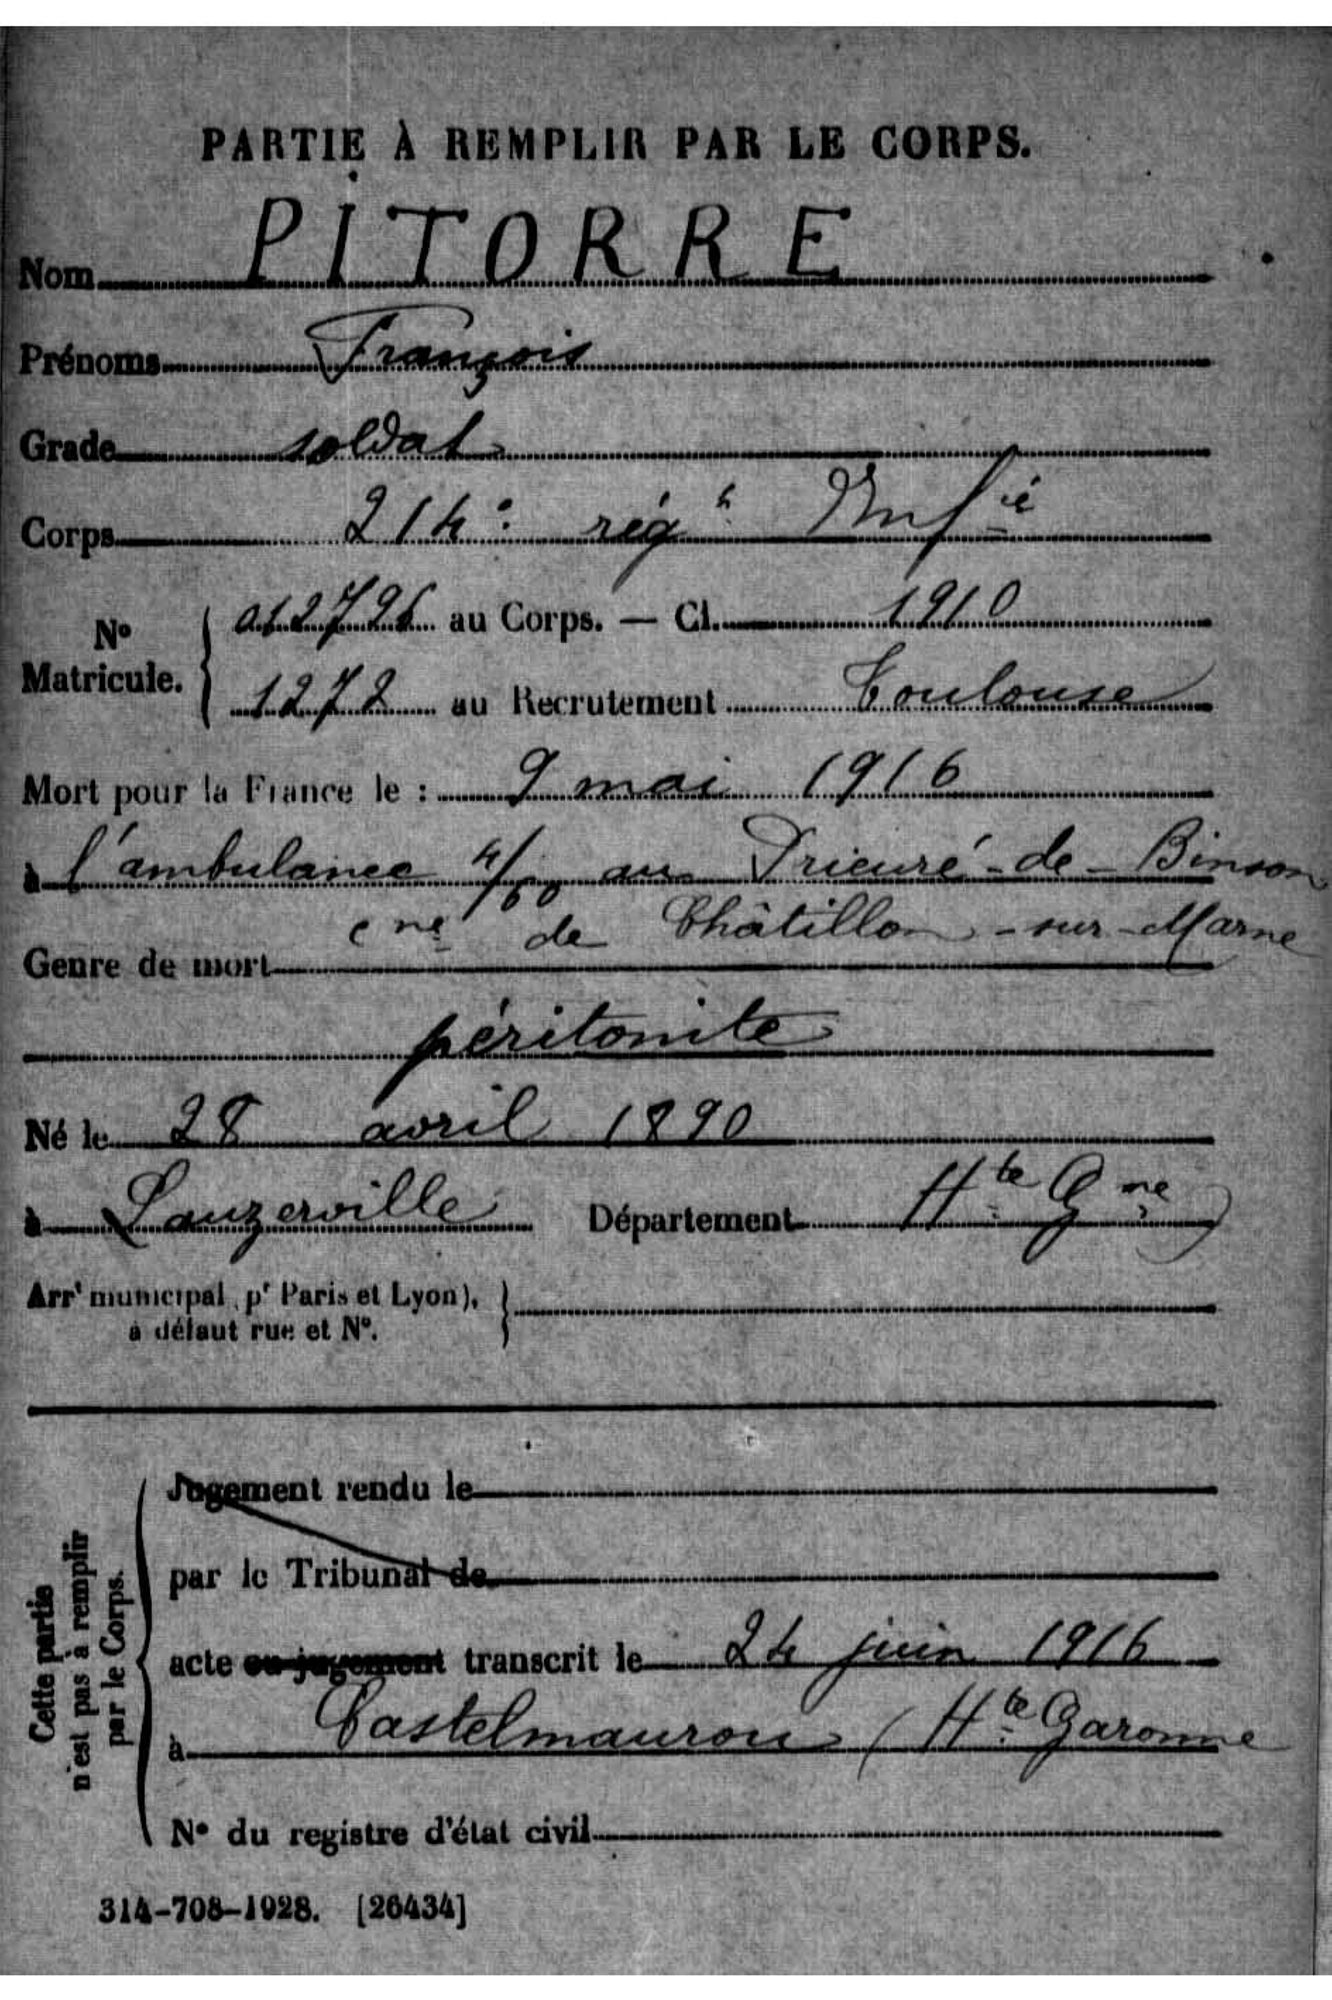 PARTIE À REMPLIR PAR LE CORPS.
Nom PITORRE
Prénoms François
Grade soldat
Corps 214e régt Infie
No Matricule. 012796 au Corps. — Cl. 1910
1272 au Recrutement Toulouse
Mort pour la France le : 9 mai 1916
à l'ambulance 4/60 au Prieuré-de-Binson
cne de Châtillon-sur-Marne
Genre de mort
péritonite
Né le 28 avril 1890
à Lauzerville Département Hte Gne
Arrt municipal pr Paris et Lyon),
à défaut rue et No.
Cette partie
n'est pas à remplir
par le Corps.
Jugement rendu le
par le Tribunal de
acte ou jugement transcrit le 24 juin 1916
à Castelmaurou (Hte Garonne
No du registre d'état civil
314-708-1928. [26434]